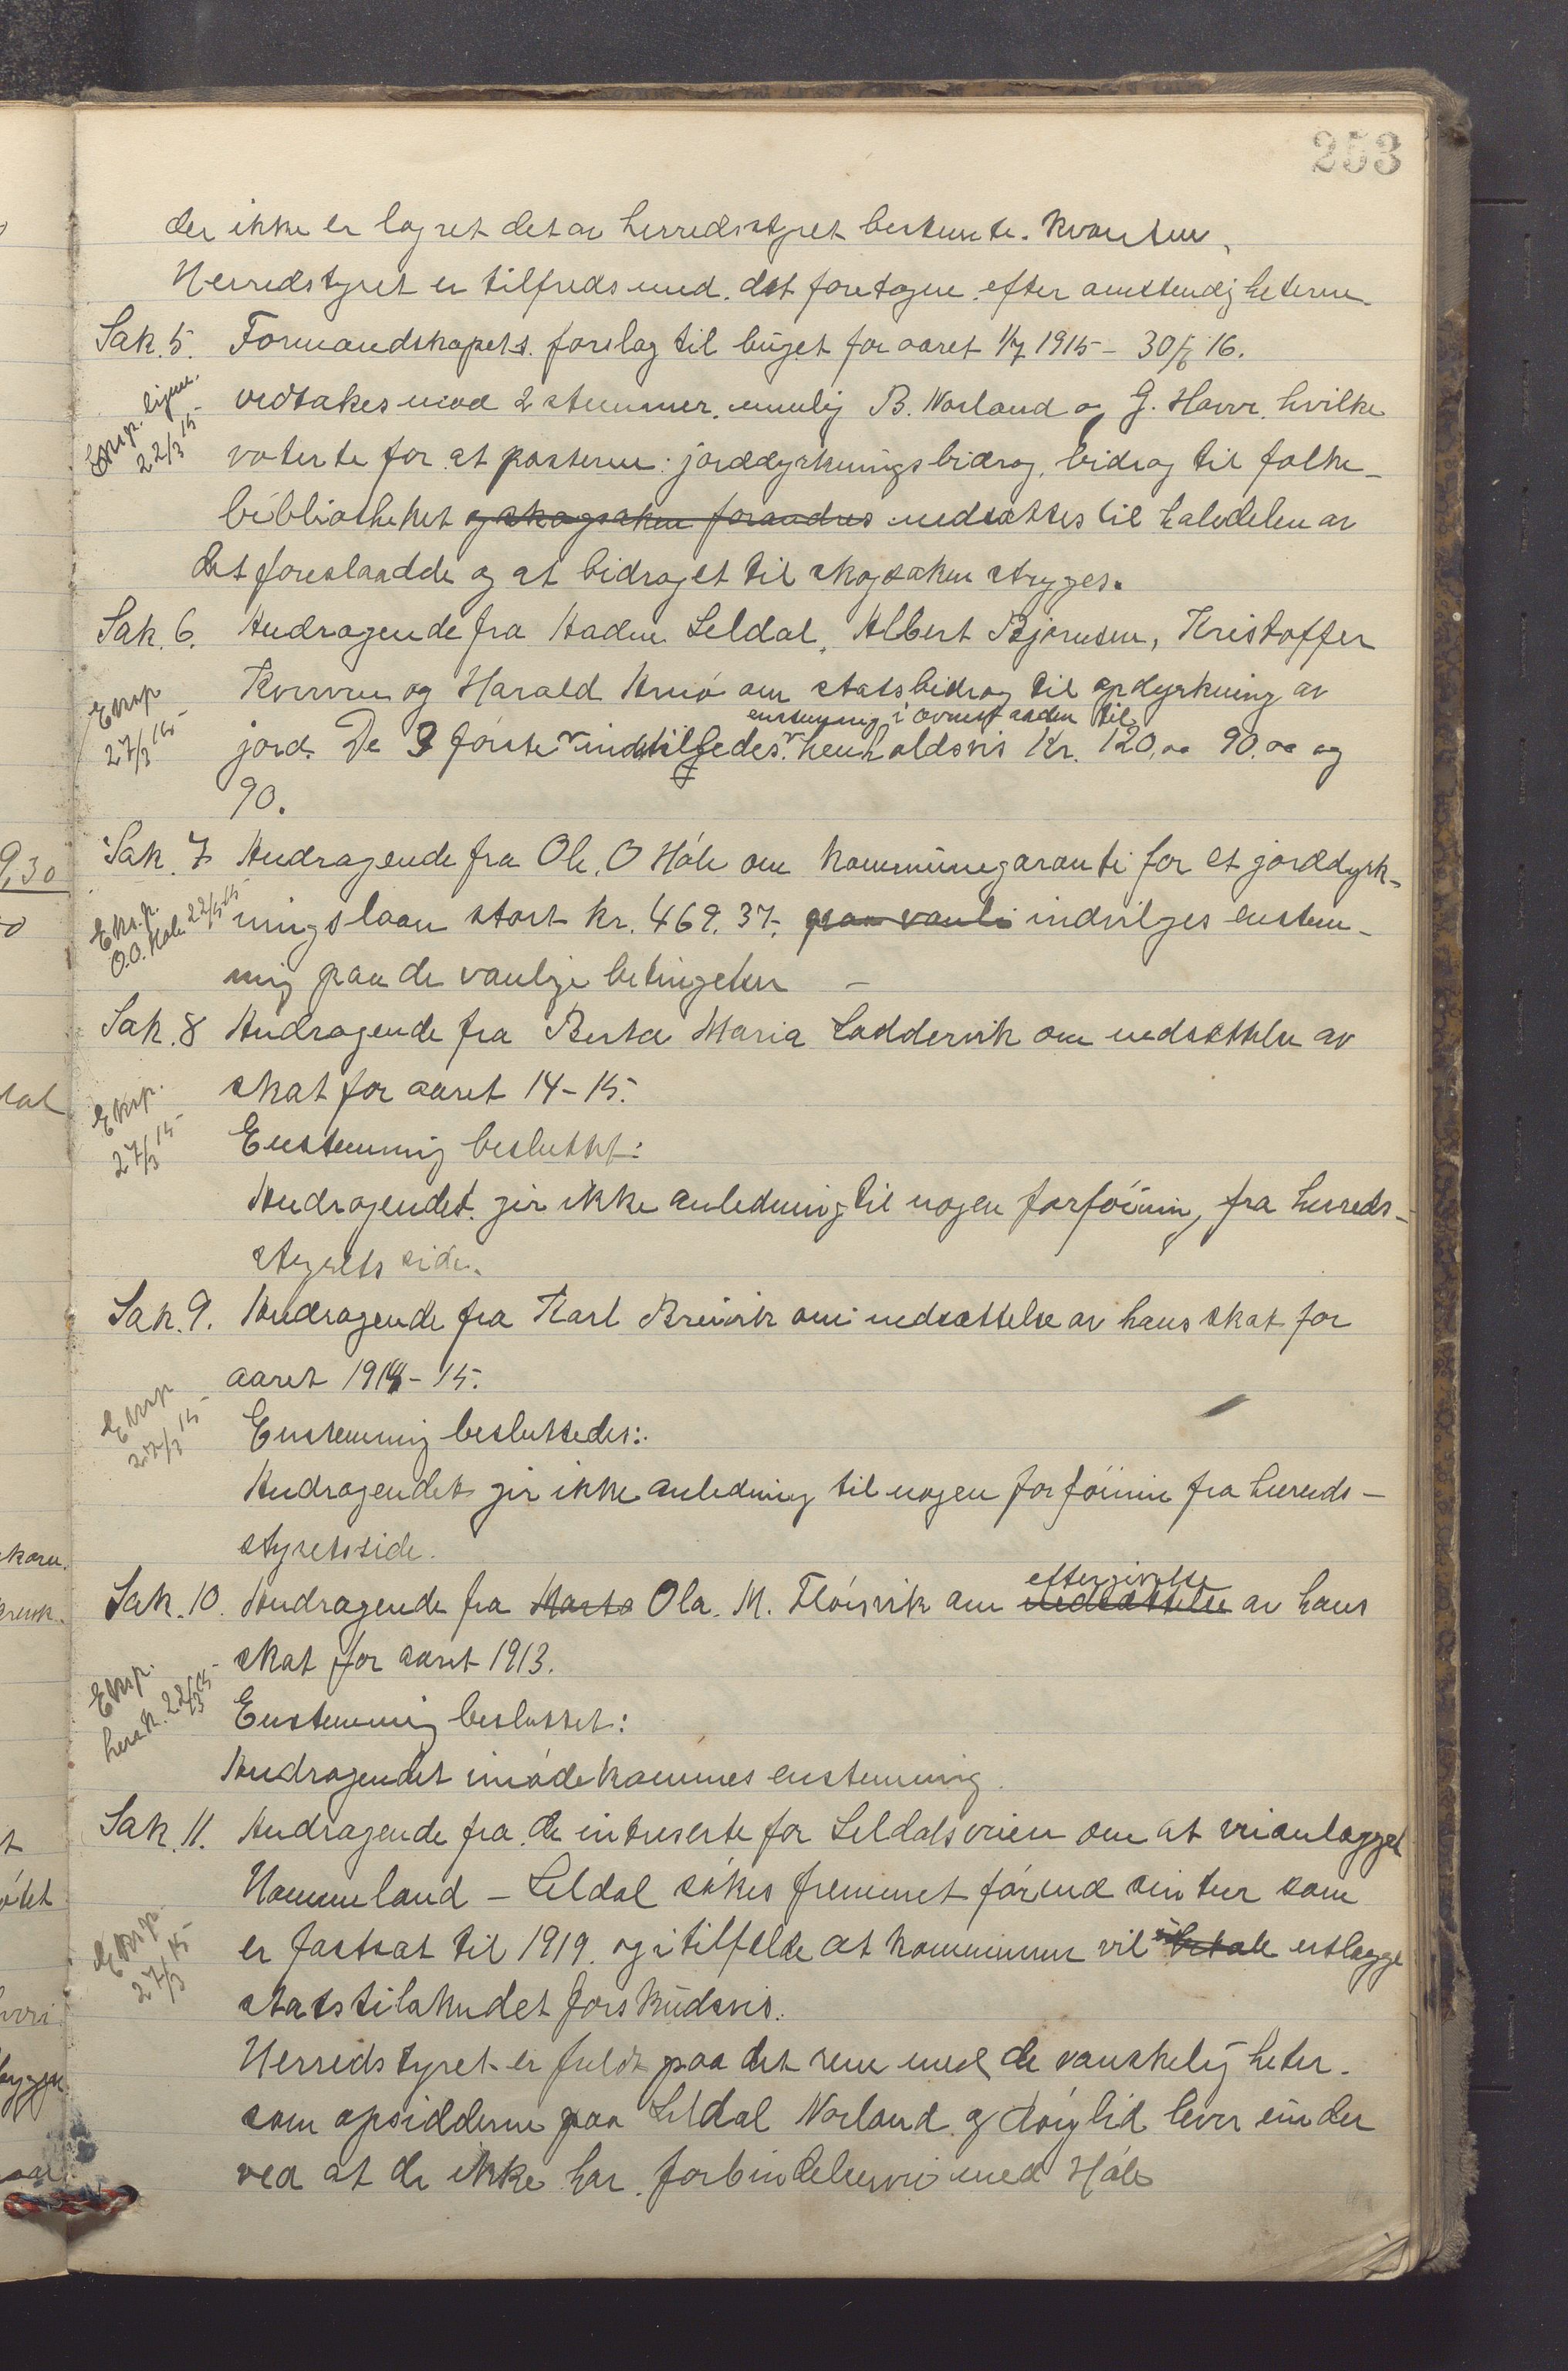 253
der ikke er lagret det av herredsstyret bestemte. kvantum.
Herredstyret er tilfreds med det foretagne efter omstendigheterne.
Sak. 5. Formandskapets forslag til büget for aaret 1/7 1915 - 30/6 16.
Eksp. lignn. 22/3 15
vedtakes mod 2 stemmer, nemlig B. Norland og G. Havr. hvilke
voterte for at posterne: jorddyrkningsbidrag, bidrag til folke-
bibliotheket og skogsaken forandres nedsættes til halvdelen av
det foreslaadde og at bidraget til skogsaken stryges.
Sak. 6. Andragende fra Aadne Leldal, Albert Bjørnsen, Kristoffer
Eksp. 27/3 15
Kverven og Harald Amö om statsbidrag til opdyrkning av
enstemmig i övnevt orden til
jord. De 3 förste indstilledes henholdsvis Kr. 120,00 90.00 og
90.
Sak. 7 Andragende fra Ole. O Håle om kommünegaranti for et jorddyrk-
Eksp. O.O. Håle 22/3 15
ningslaan stort kr. 469.37, paa vanli indvilges enstem-
mig paa de vanlige betingelser —
Sak. 8 Andragende fra Berta Maria Laddervik om nedsættelse av
Eksp. 27/3 15
skat for aaret 14-15.
Enstemmig besluttet:
Andragendet gir ikke anledning til nogen forföining fra herreds-
styrets side.
Sak. 9. Andragende fra Karl Breivik om nedsættelse av hans skat for
Eksp 27/3 15
aaret 1914-15.
Enstemmig besluttedes:
Andragendet gir ikke anledning til nogen forföinin fra herreds-
styretsside.
eftergivelse
Sak. 10. Andragende fra Marta Ola. M. Flöisvik om nedsættelse av hans
Eksp. herak. 22/3 15
skat for aaret 1913.
Enstemmig besluttet:
Andragendet imödekommes enstemmig.
Sak. 11. Andragende fra de intreserte for Leldalsveien om at veianlægget
Nommeland - Leldal sökes fremmet förend sin tur som
Eksp. 27/3 15
er fastsat til 1919. og i tilfelde at kommunen vil betale utlægge
statstilskudet forskudsvis.
Herredstyret er fuldt paa det rene med de vanskeligheter.
som opsidderne paa Leldal Norland og döiglid lever ünder
ved at de ikke har forbindelsesvei med Håle